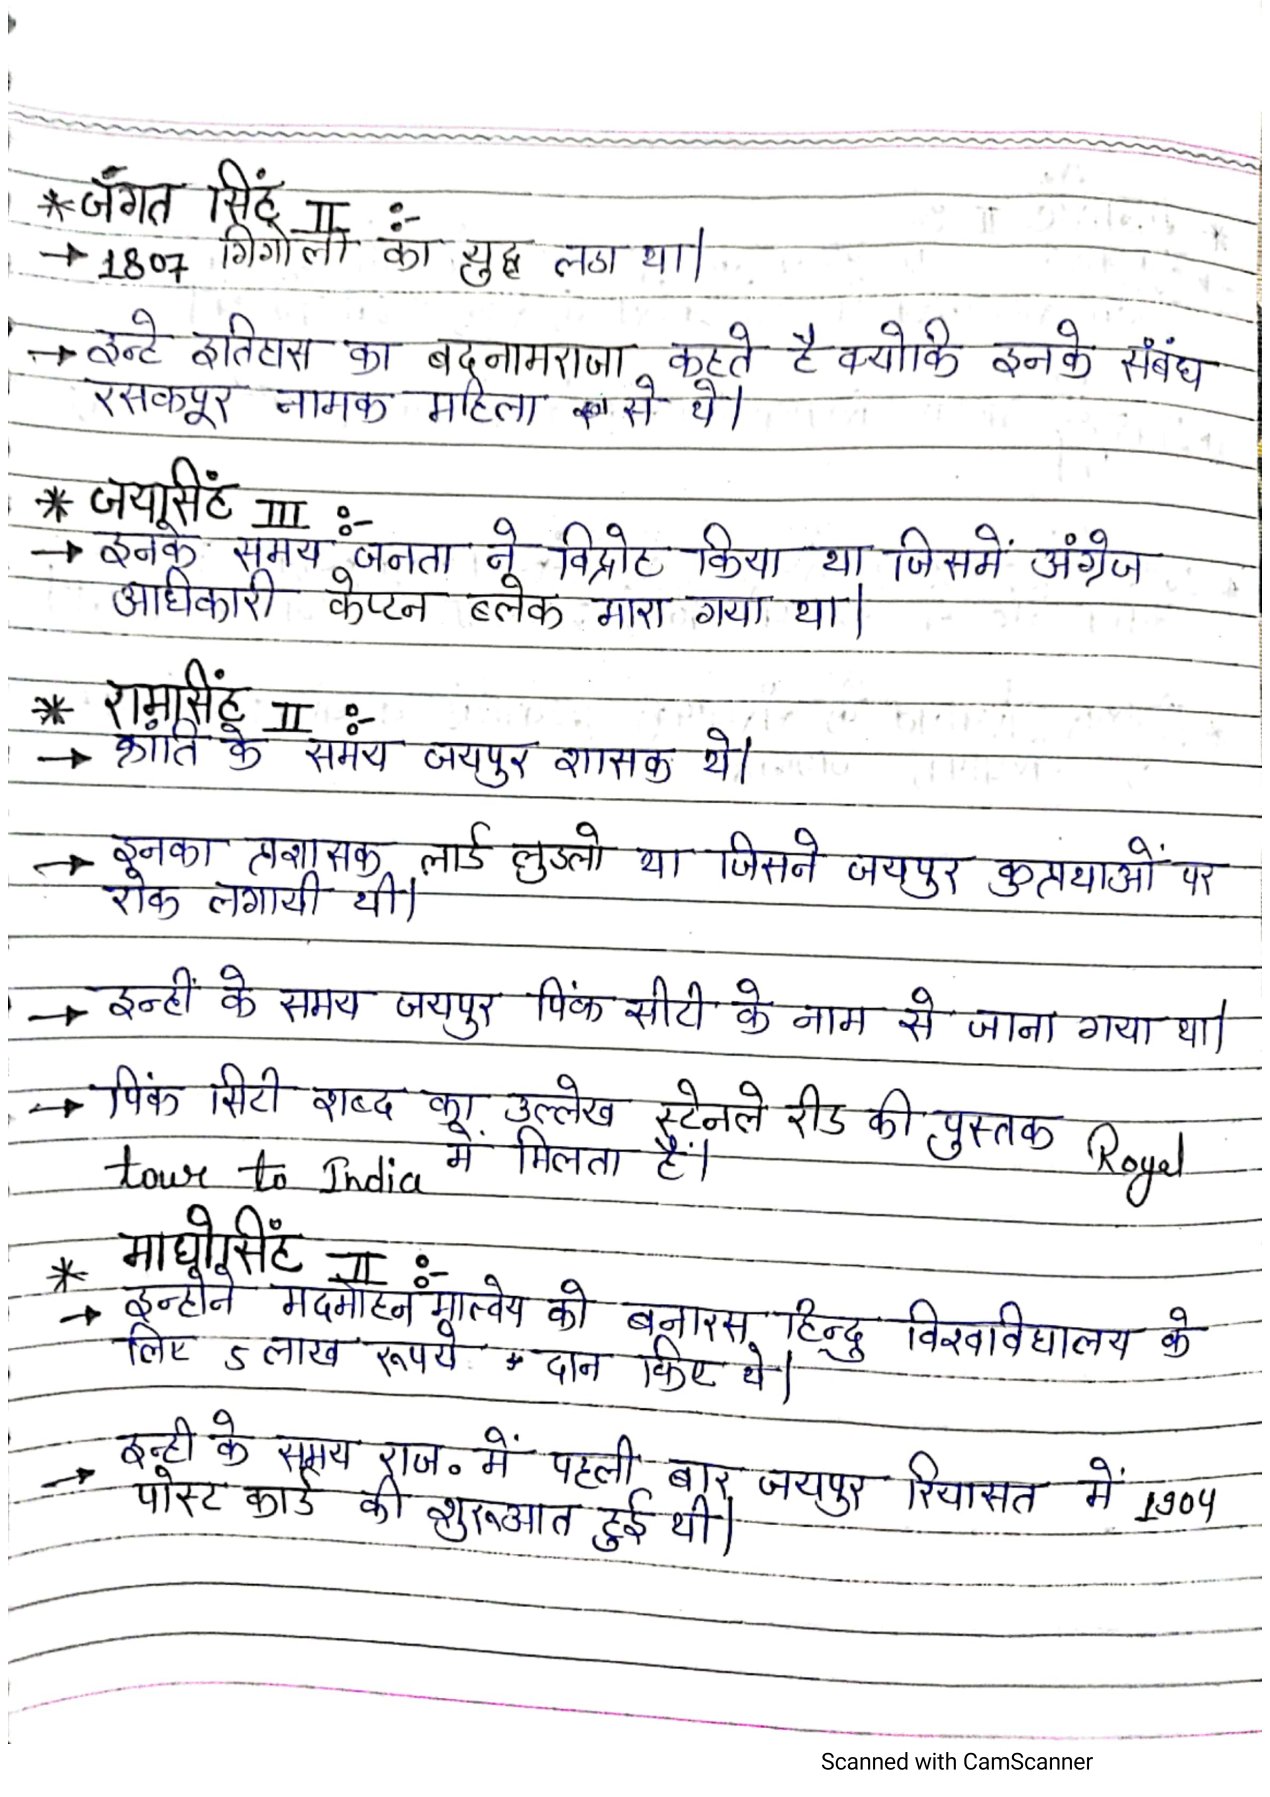 * जँगत सिंह II :-
→ 1807 गिंगोली का युद्ध लडा था।
→ इन्हे इतिहास का बदनामराजा कहते है क्योकि इनके संबंध
रसकपूर नामक महिला से थे।
* जयसिंह III :-
→ इनके समय जनता ने विद्रोह किया था जिसमें अंग्रेज
अधिकारी केप्टन ब्लेक मारा गया था।
* रामसिंह II :-
→ क्रांति के समय जयपुर शासक थे।
→ इनका प्रशासक लार्ड लुडलो था जिसने जयपुर कुप्रथाओं पर
रोक लगायी थी।
→ इन्हीं के समय जयपुर पिंक सीटी के नाम से जाना गया था।
→ पिंक सिटी शब्द का उल्लेख स्टेनले रीड की पुस्तक Royal
tour to India में मिलता हैं।
* माधोसिंह II :-
→ इन्होने मदमोहन मालवेय को बनारस हिन्दु विश्वाविद्यालय के
लिए 5 लाख रूपये दान किए थे।
→ इन्ही के समय राज. में पहली बार जयपुर रियासत में 1904
पोस्ट कार्ड की शुरूआत हुई थी।
Scanned with CamScanner